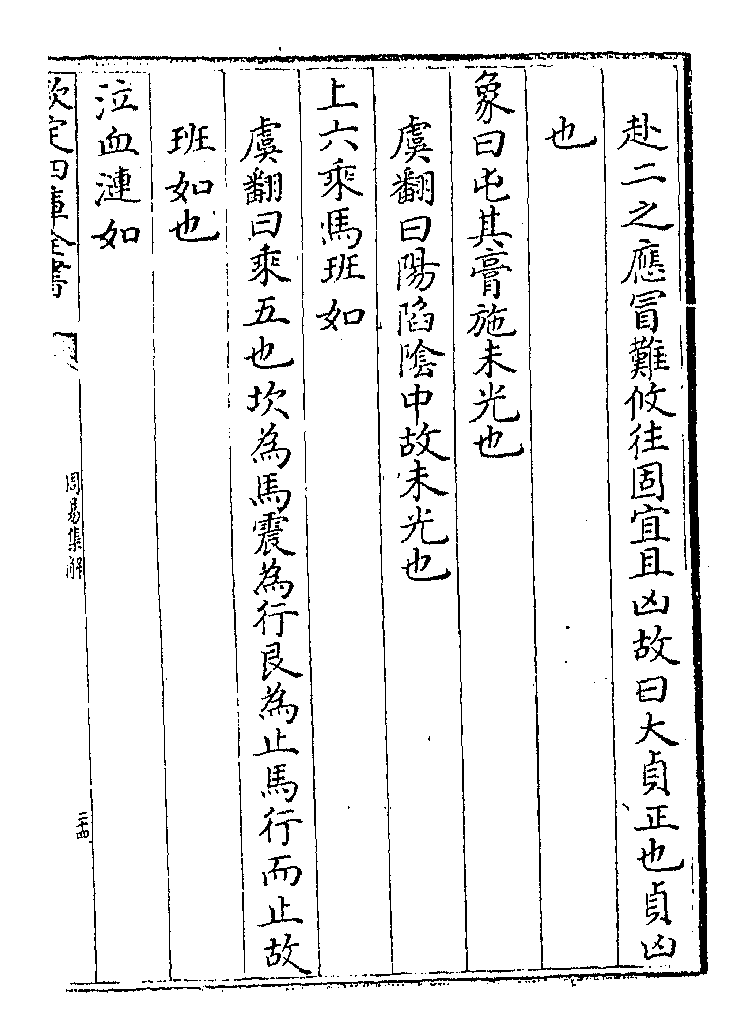 赴二之應冒難攸往固宜且凶故曰大貞正也貞凶
也
象曰屯其膏施未光也
虞翻曰陽陷陰中故未光也
上六乘馬班如
虞翻曰乘五也坎為馬震為行艮為止馬行而止故
班如也
泣血漣如
欽定四庫全書
周易集解
二十四